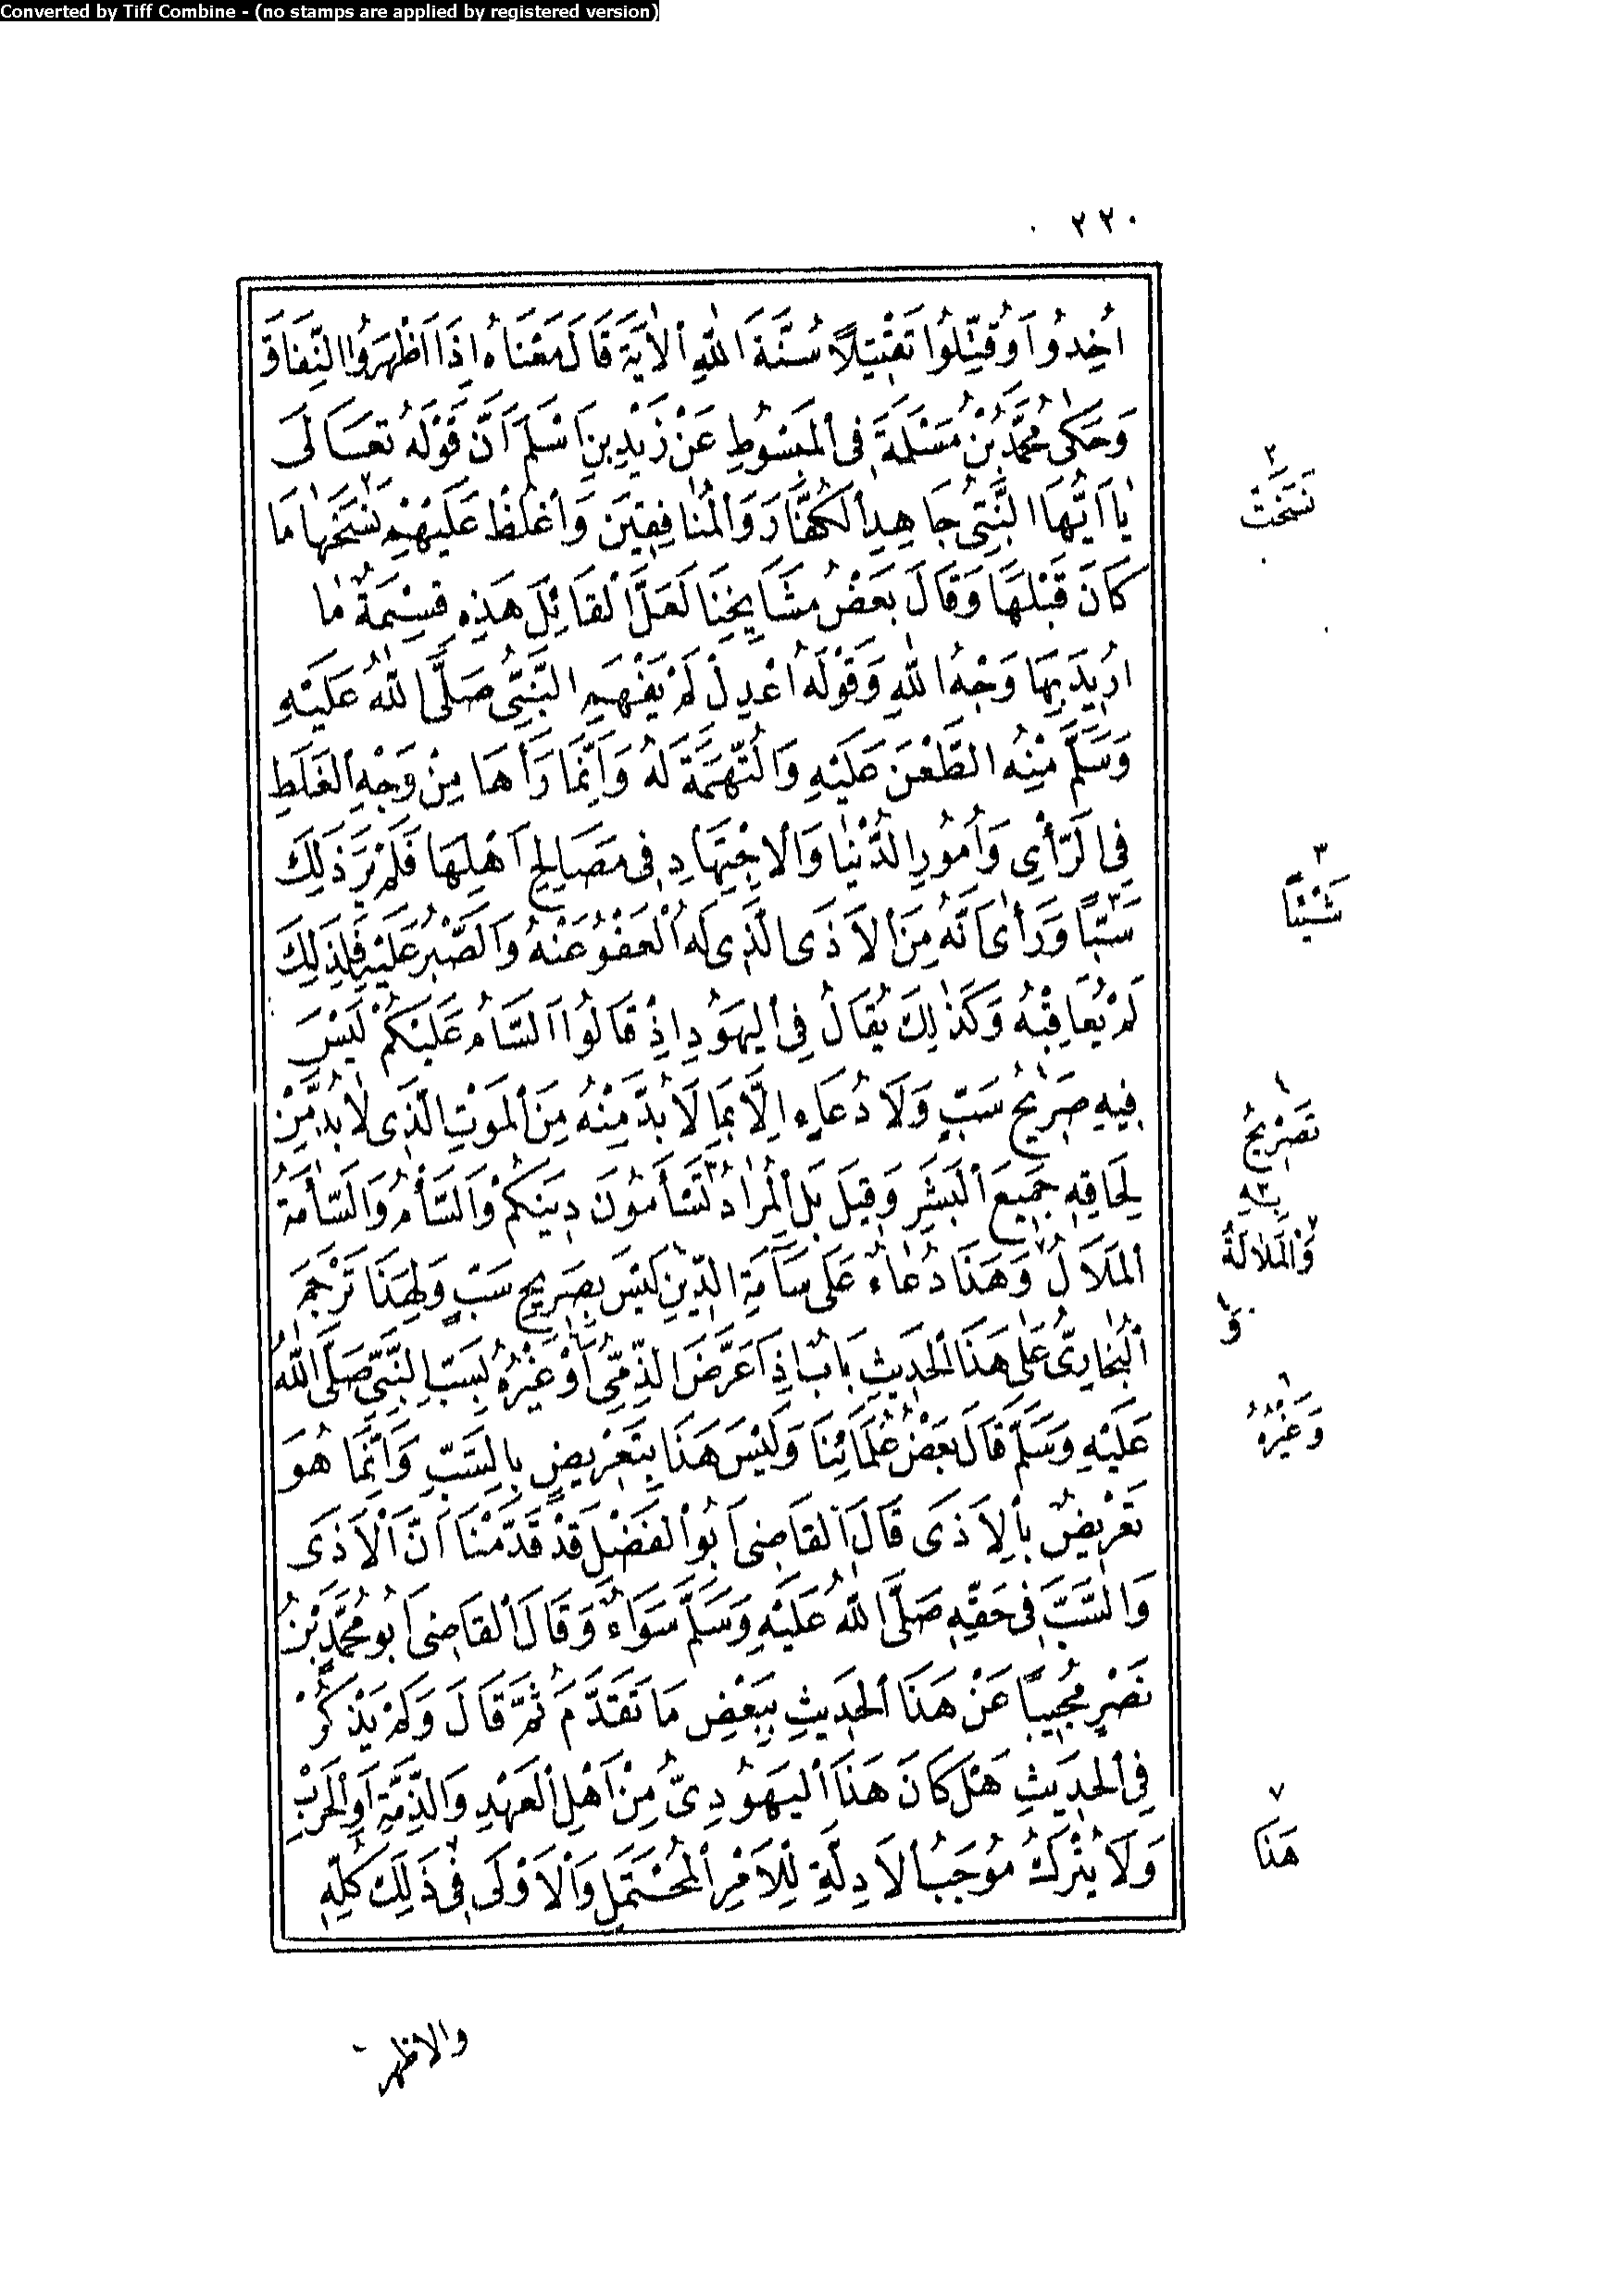 Converted by Tiff Combine - (no stamps are applied by registered version)
٢٢٠
اُخِذُوا وَقُتِّلُوا تَقْتِيلاً سُنَّةَ اللهِ الْاٰيَةَ قَالَ مَعْنَاهُ اِذَا اَظْهَرُوا النِّفَاقَ
وَحَكٰى مُحَمَّدُ بْنُ مَسْلَمَةَ فِى الْمَبْسُوطِ عَنْ زَيْدِ بْنِ اَسْلَمَ اَنَّ قَوْلَهُ تَعَالَى
يٰا اَيُّهَا النَّبِىُّ جَاهِدِ الْكُفَّارَ وَالْمُنَافِقِينَ وَاغْلُظْ عَلَيْهِمْ نَسَخَهٰا مَا
كَانَ قَبْلَهَا وَقَالَ بَعْضُ مَشَايِخِنَا لَعَلَّ الْقَائِلَ هَذِهِ قِسْمَةٌ مٰا
اُرِيدَ بِهَا وَجْهُ اللهِ وَقَوْلَهُ اعْدِلْ لَمْ يَفْهَمِ النَّبِىُّ صَلَّى اللهُ عَلَيْهِ
وَسَلَّمَ مِنْهُ الطَّعْنَ عَلَيْهِ وَالتُّهَمَةَ لَهُ وَاِنَّمَا رَأَهَا مِنْ وَجْهِ الْغَلَطِ
فِى الرَّأْىِ وَاُمُورِ الدُّنْيٰا وَالْاِجْتِهَادِ فِى مَصَالِحِ اَهْلِهَا فَلَمْ يَرَ ذٰلِكَ
سَبًّا وَرَاٰى اَنَّهُ مِنَ الْاَذَى الَّذِى لَهُ الْعَفْوُ عَنْهُ وَالصَّبْرُ عَلَيْهِ فَلِذٰلِكَ
لَمْ يُعَاقِبْهُ وَكَذٰلِكَ يُقَالُ فِى الْيَهُودِ اِذْ قَالُوا السَّامُ عَلَيْكُمْ لَيْسَ
فِيهِ صَرِيحُ سَبٍّ وَلَا دُعَاءٍ اِلَّا بِمَا لَا بُدَّ مِنْهُ مِنَ الْمَوْتِ الَّذِى لَا بُدَّ مِنْ
لِحَاقِهِ جَمِيعَ الْبَشَرِ وَقِيلَ بَلِ الْمُرَادُ تَسْأَمُونَ دِينَكُمْ وَالسَّأْمُ وَالسَّأٰمَةُ
الْمَلَالُ وَهَذَا دُعَاءٌ عَلَى سَآمَةِ الدِّينِ لَيْسَ بِصَرِيحِ سَبٍّ وَلِهَذَا تَرْجَمَ
الْبُخَارِىُّ عَلٰى هَذَا الْحَدِيثِ بَابٌ اِذَا عَرَّضَ الذِّمِّىُّ اَوْ غَيْرُهُ بِسَبِّ النَّبِىِّ صَلَّى اللهُ
عَلَيْهِ وَسَلَّمَ قَالَ بَعْضُ عُلَمَائِنَا وَلَيْسَ هَذَا بِتَعْرِيضٍ بِالسَّبِّ وَاِنَّمَا هُوَ
تَعْرِيضٌ بِالْاَذَى قَالَ الْقَاضِى اَبُو الْفَضْلِ قَدْ قَدَّمْنَا اَنَّ الْاَذَى
وَالسَّبَّ فِى حَقِّهِ صَلَّى اللهُ عَلَيْهِ وَسَلَّمَ سَوَاءٌ وَقَالَ الْقَاضِى اَبُو مُحَمَّدِ بْنُ
نَصْرٍ مُجِيبًا عَنْ هَذَا الْحَدِيثِ بِبَعْضِ مَا تَقَدَّمَ ثُمَّ قَالَ وَلَمْ يَذْكُرْ
فِى الْحَدِيثِ هَلْ كَانَ هَذَا الْيَهُودِىُّ مِنْ اَهْلِ الْعَهْدِ وَالذِّمَّةِ اَوِ الْحَرْبِ
وَلَا يُتْرَكُ مُوجَبُ الْاَدِلَّةِ لِلْاَمْرِ الْمُحْتَمَلِ وَالْاَوْلَى فِى ذٰلِكَ كُلِّهِ
٢
نَسَخَتْ
٣
شَيْئًا
تَصْرِيحُ
وَالْمَلَالَةُ
وَ
وَغَيْرُهُ
٧
هَذَا
والاظهر